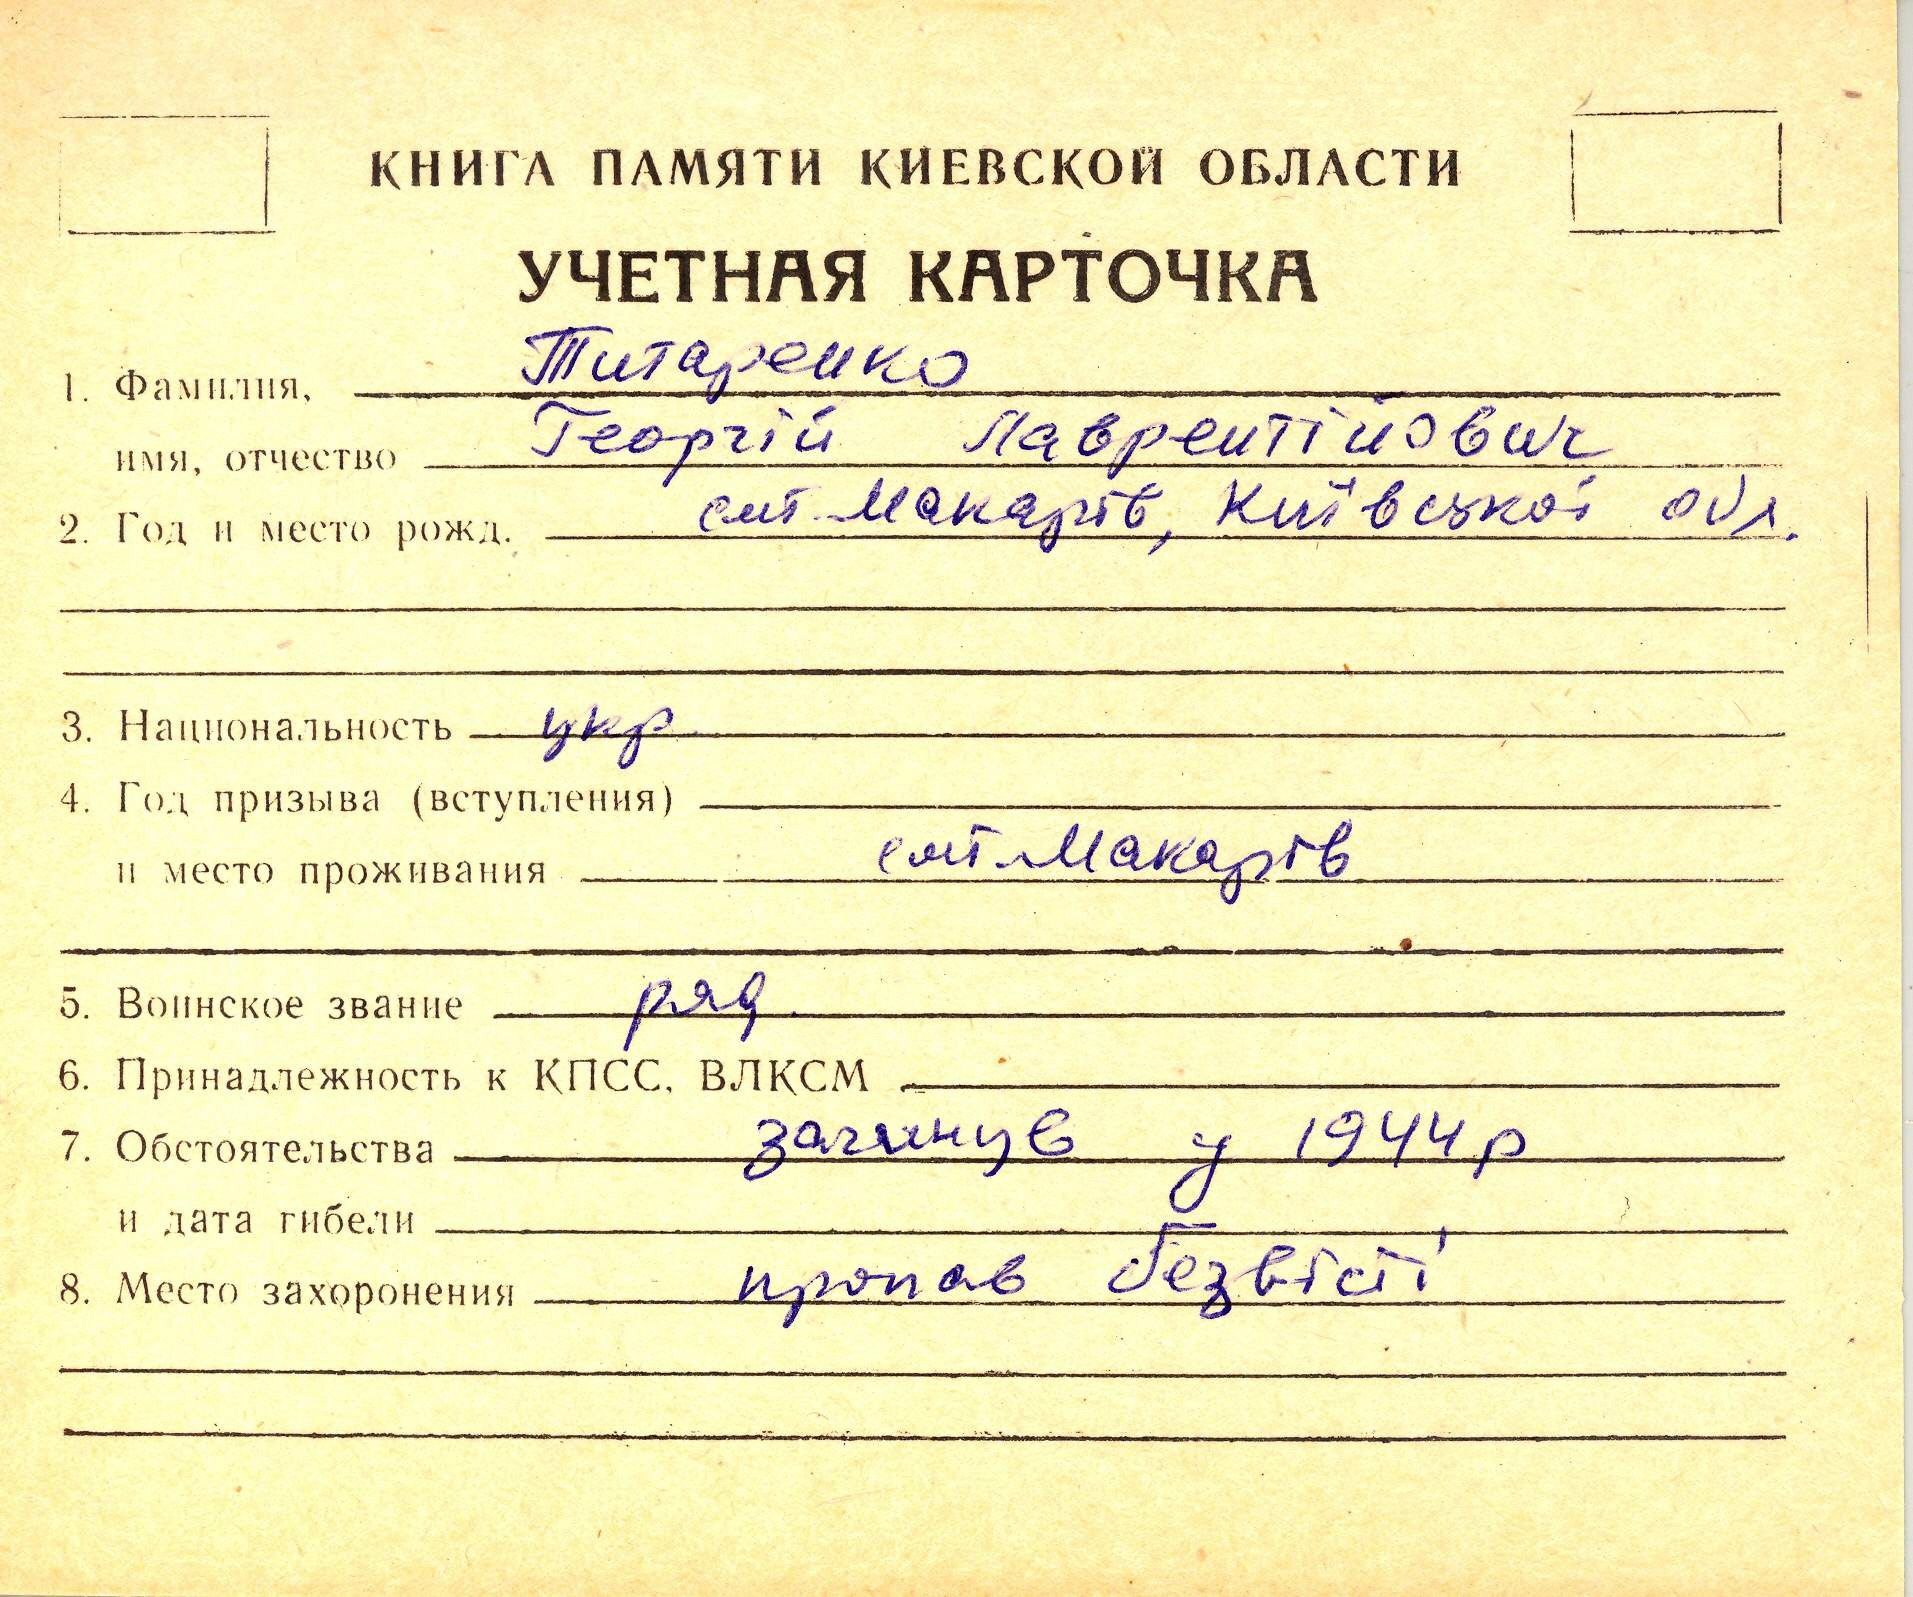 КНИГА ПАМЯТИ КИЕВСКОЙ ОБЛАСТИ
УЧЕТНАЯ КАРТОЧКА
1. Фамилия, Титаренко
имя, отчество Георгій Лаврентійович
2. Год и место рожд. смт. Макарів, Київської обл.
3. Национальность укр.
4. Год призыва (вступления)
и место проживания смт. Макарів
5. Воинское звание ряд.
6. Принадлежность к КПСС, ВЛКСМ
7. Обстоятельства загинув у 1944 р
и дата гибели
8. Место захоронения пропав безвісті